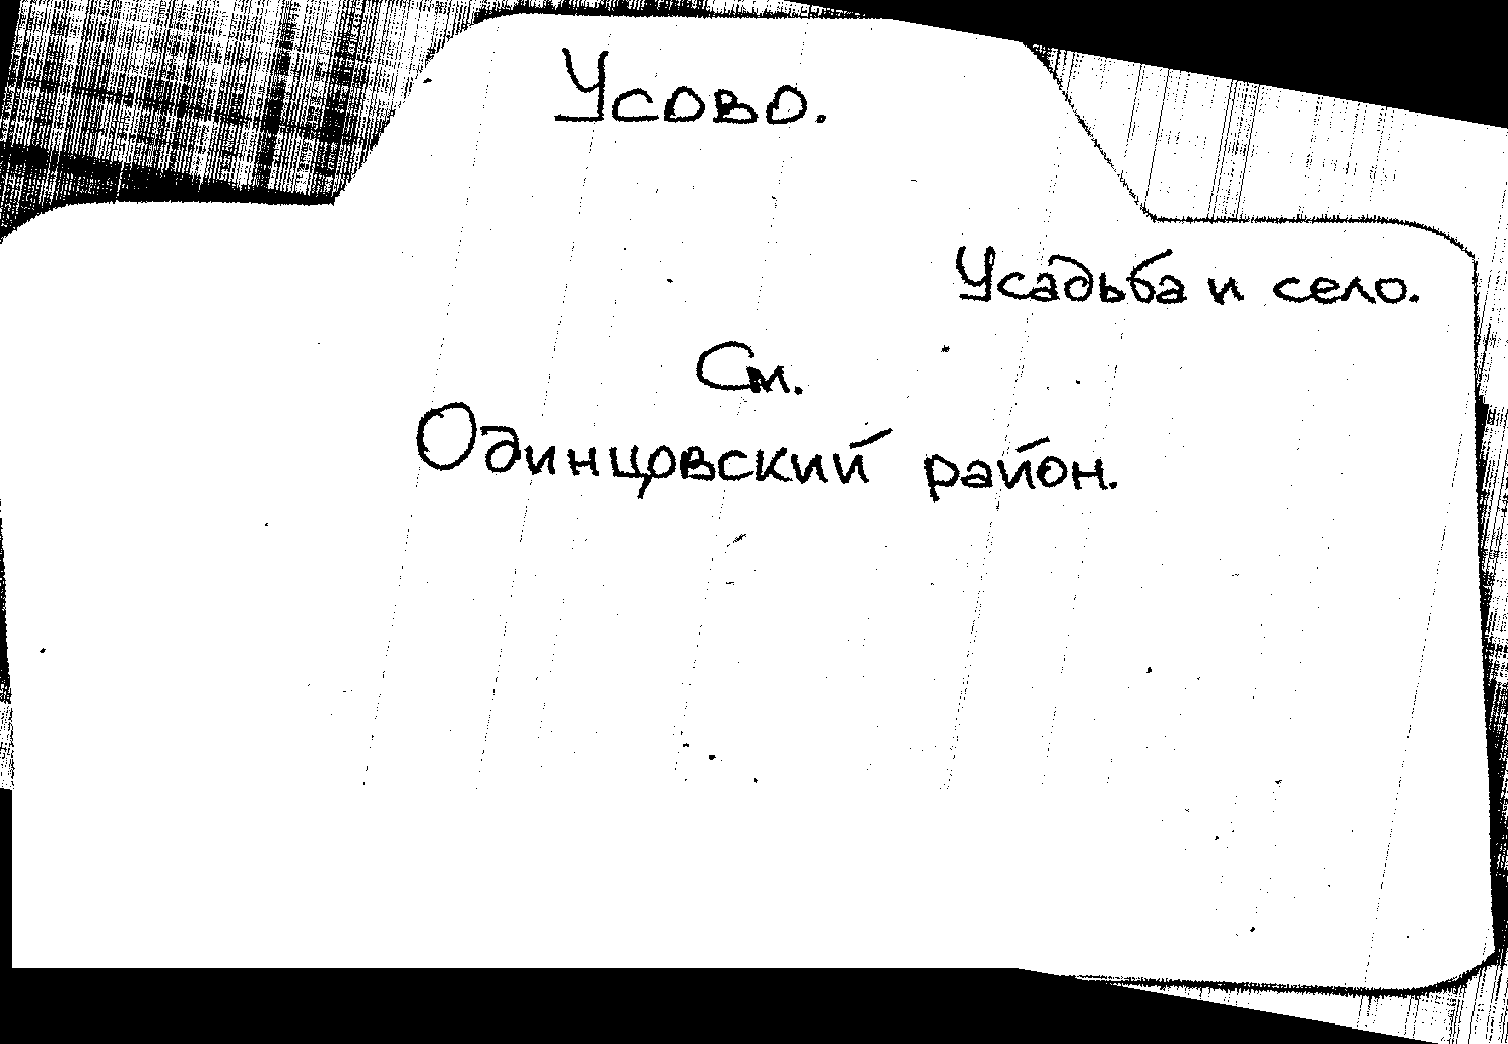 Усово.
Усадьба и село.
См.
Одинцовский район.